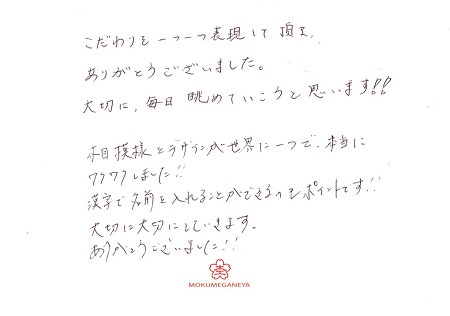 こだわりを一つ一つ表現して頂き、
ありがとうございました。
大切に、毎日眺めていこうと思います!!
木目模様とデザインが世界に一つで、本当に
ワクワクしました!!
漢字で名前を入れることができるのもポイントです!!
大切に大切にしていきます。
ありがとうございました!!
MOKUMEGANEYA